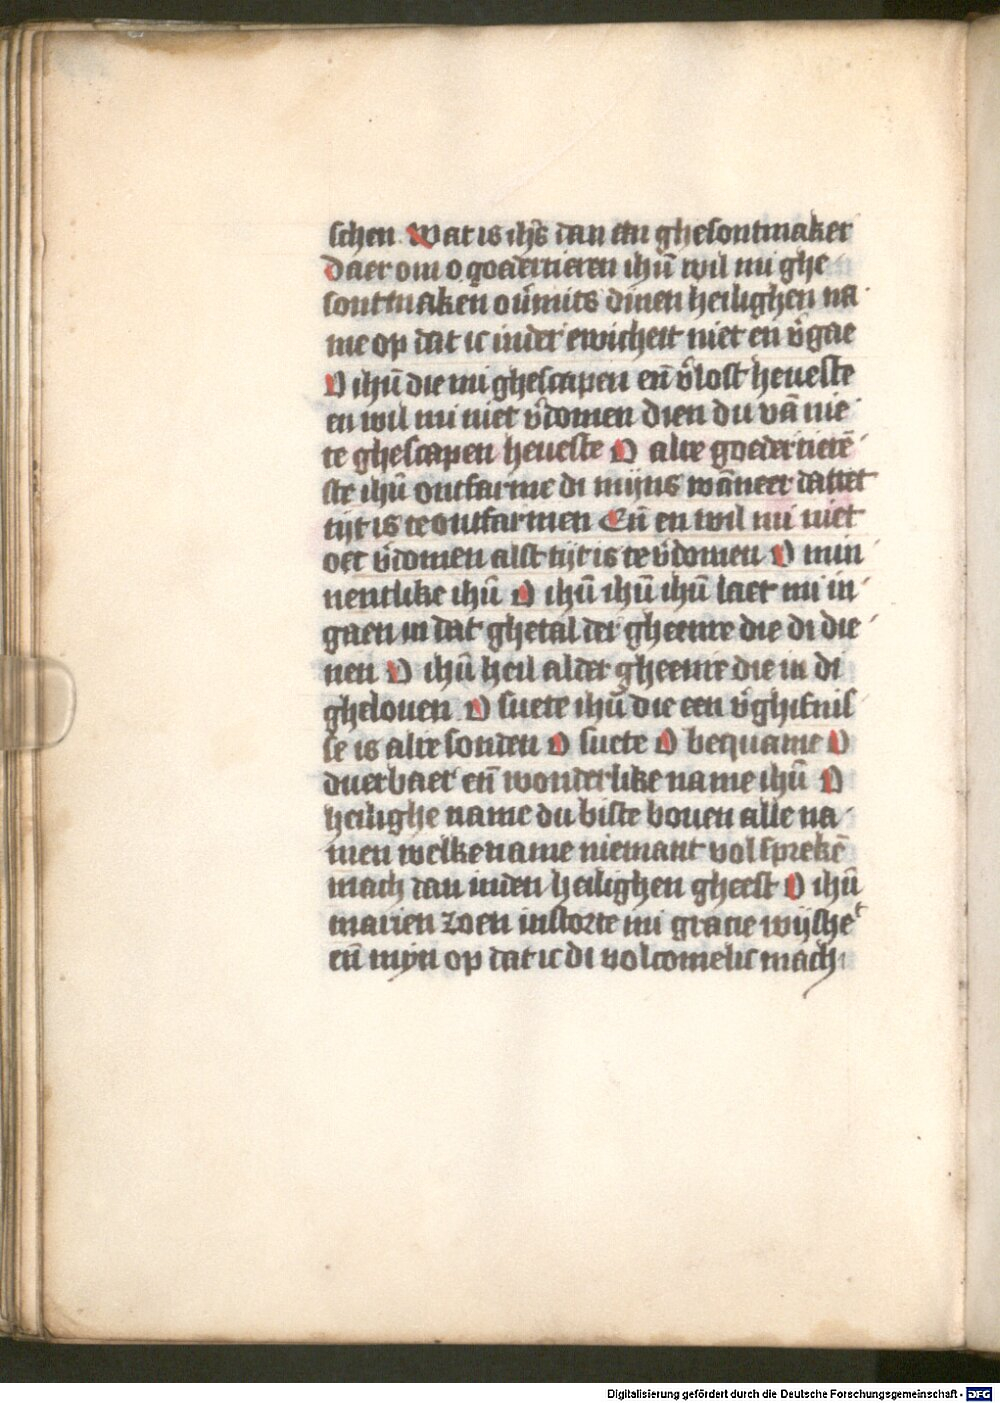 schen Wat is ihs̄ dan een ghesontmaker
Daer om o goedertieren ihū wil mi ghe
sontmakē ouermits dinen heilighen na
me op dat ic inder ewicheit niet en v̄gae
O ihū die mi ghescapen en̄ v̄lost heueste
en wil mi niet v̄domen dien du vā nie
te ghescapen heueste O alre goedertierē
ste ihū ontfarme di mijns wāneer dattet
tijt is te ontfarmen En̄ en wil mi niet
oec v̄domen alst tijt is te v̄domen O min
nentlike ihū O ihū ihū ihū laet mi in
gaen in dat ghetal der gheenre die di die
nen O ihū heil alder gheenre die in di
ghelouen O suete ihū die een v̄ghifnis
se is alre sonden O suete O bequame O
duerbaer en̄ wonderlike name ihū O
heilighe name du biste bouen alle na
men welke name niemant vol sprekē
mach dan inden heilighen gheest O ihū
marien zoen instorte mi gracie wijshet
en̄ mijn op dat ic di volcomelic mach
Digitalisierung gefördert durch die Deutsche Forschungsgemeinschaft - DFG